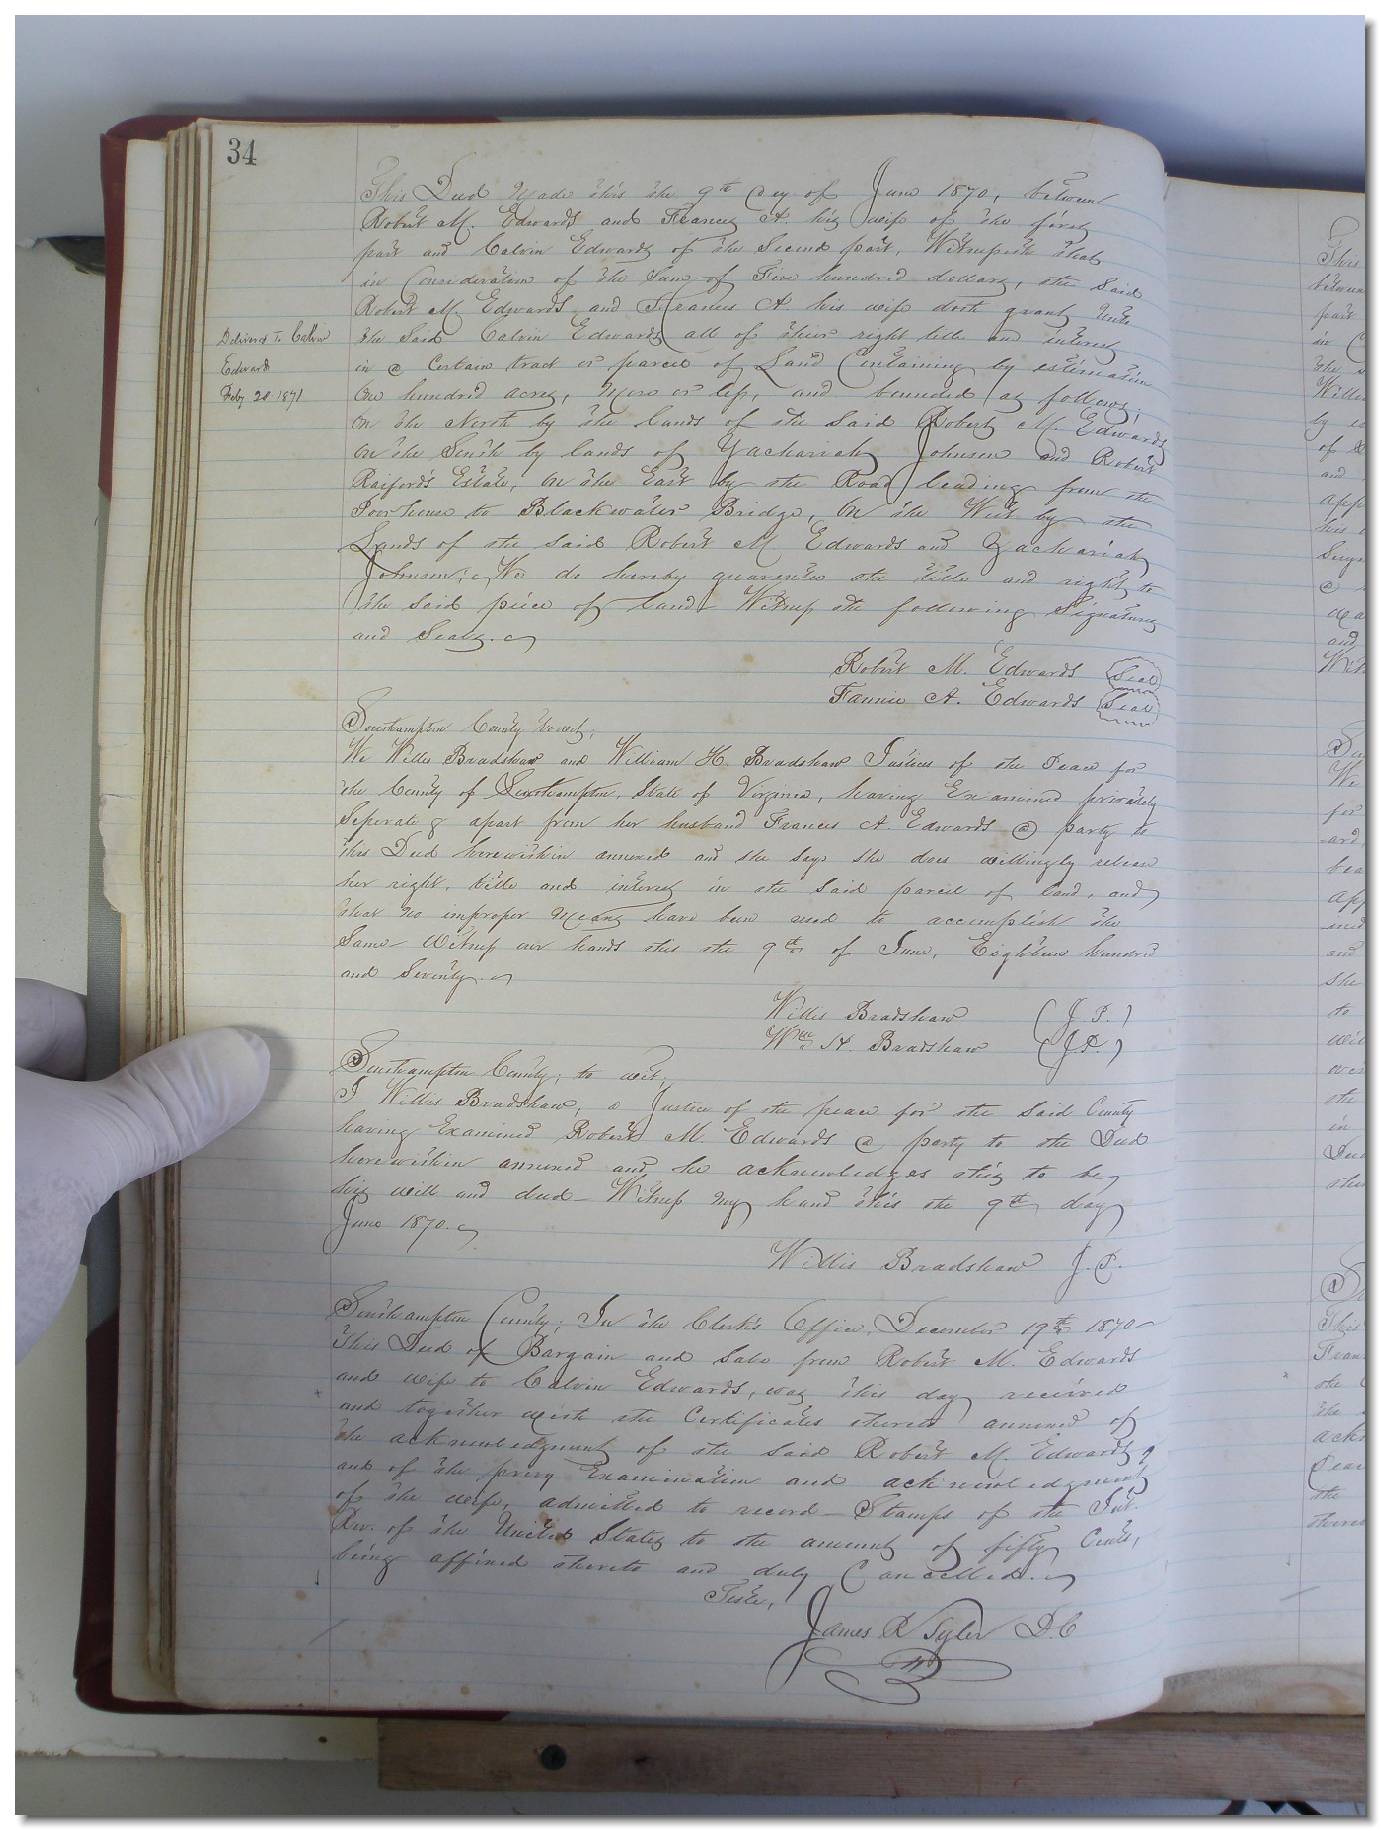 34
This Deed made this the 9th day of June 1870, between
Robert M. Edwards and Frances A. his wife of the first
part and Calvin Edwards of the Second part, Witnesseth that
in Consideration of the Sum of Five hundred dollars, the Said
Robert M. Edwards and Frances A his wife doth grant unto
the Said Calvin Edwards all of their right title and interest
in a Certain tract or parcel of Land Containing by estimation
One hundred acres, more or less, and bounded as follows;
On the North by the lands of the Said Robert M. Edwards
On the South by lands of Zachariah Johnson and Robert
Raiford's Estate, On the East by the Road leading from the
Poorhouse to Blackwater Bridge, On the West by the
Lands of the Said Robert M Edwards and Zachariah
Johnson; We do hereby guarantee the title and right to
the Said piece of land - Witness the following Signatures
and Seals.
Delivered To Calvin
Edward
Feby 28 1871
Robert M. Edwards Seal
Fannie A. Edwards Seal
Southampton County towit;
We Willis Bradshaw and William H. Bradshaw Justices of the Peace for
the County of Southampton, State of Virginia, having Examined privately
Seperate & apart from her husband Frances A. Edwards a party to
this Deed herewithin annexed and she Says She does willingly release
her right, title and interest in the Said parcel of land, and
that no improper means have been used to accomplish the
Same - Witness our hands this the 9th of June, Eighteen hundred
and Seventy.
Willis Bradshaw (J.P.)
Wm H. Bradshaw (J.P.)
Southampton County; to wit;
I Willis Bradshaw, a Justice of the peace for the Said County
having Examined Robert M. Edwards a party to the Deed
herewithin annexed and he acknowledges this to be
his will and deed - Witness my hand this the 9th day
June 1870.
Willis Bradshaw J.P.
Southampton County; In the Clerk's Office, December 19th 1870 -
This Deed of Bargain and Sale from Robert M. Edwards
and wife to Calvin Edwards, was this day received
and together with the Certificates thereto annexed of
the acknowledgment of the Said Robert M. Edwards,
and of the privy Examination and acknowledgment
of the wife, admitted to record - Stamps of the Int.
Rev. of the United States to the amount of fifty Cents,
being affixed thereto and duly Cancelled.
Teste,
James R Tyler D.C